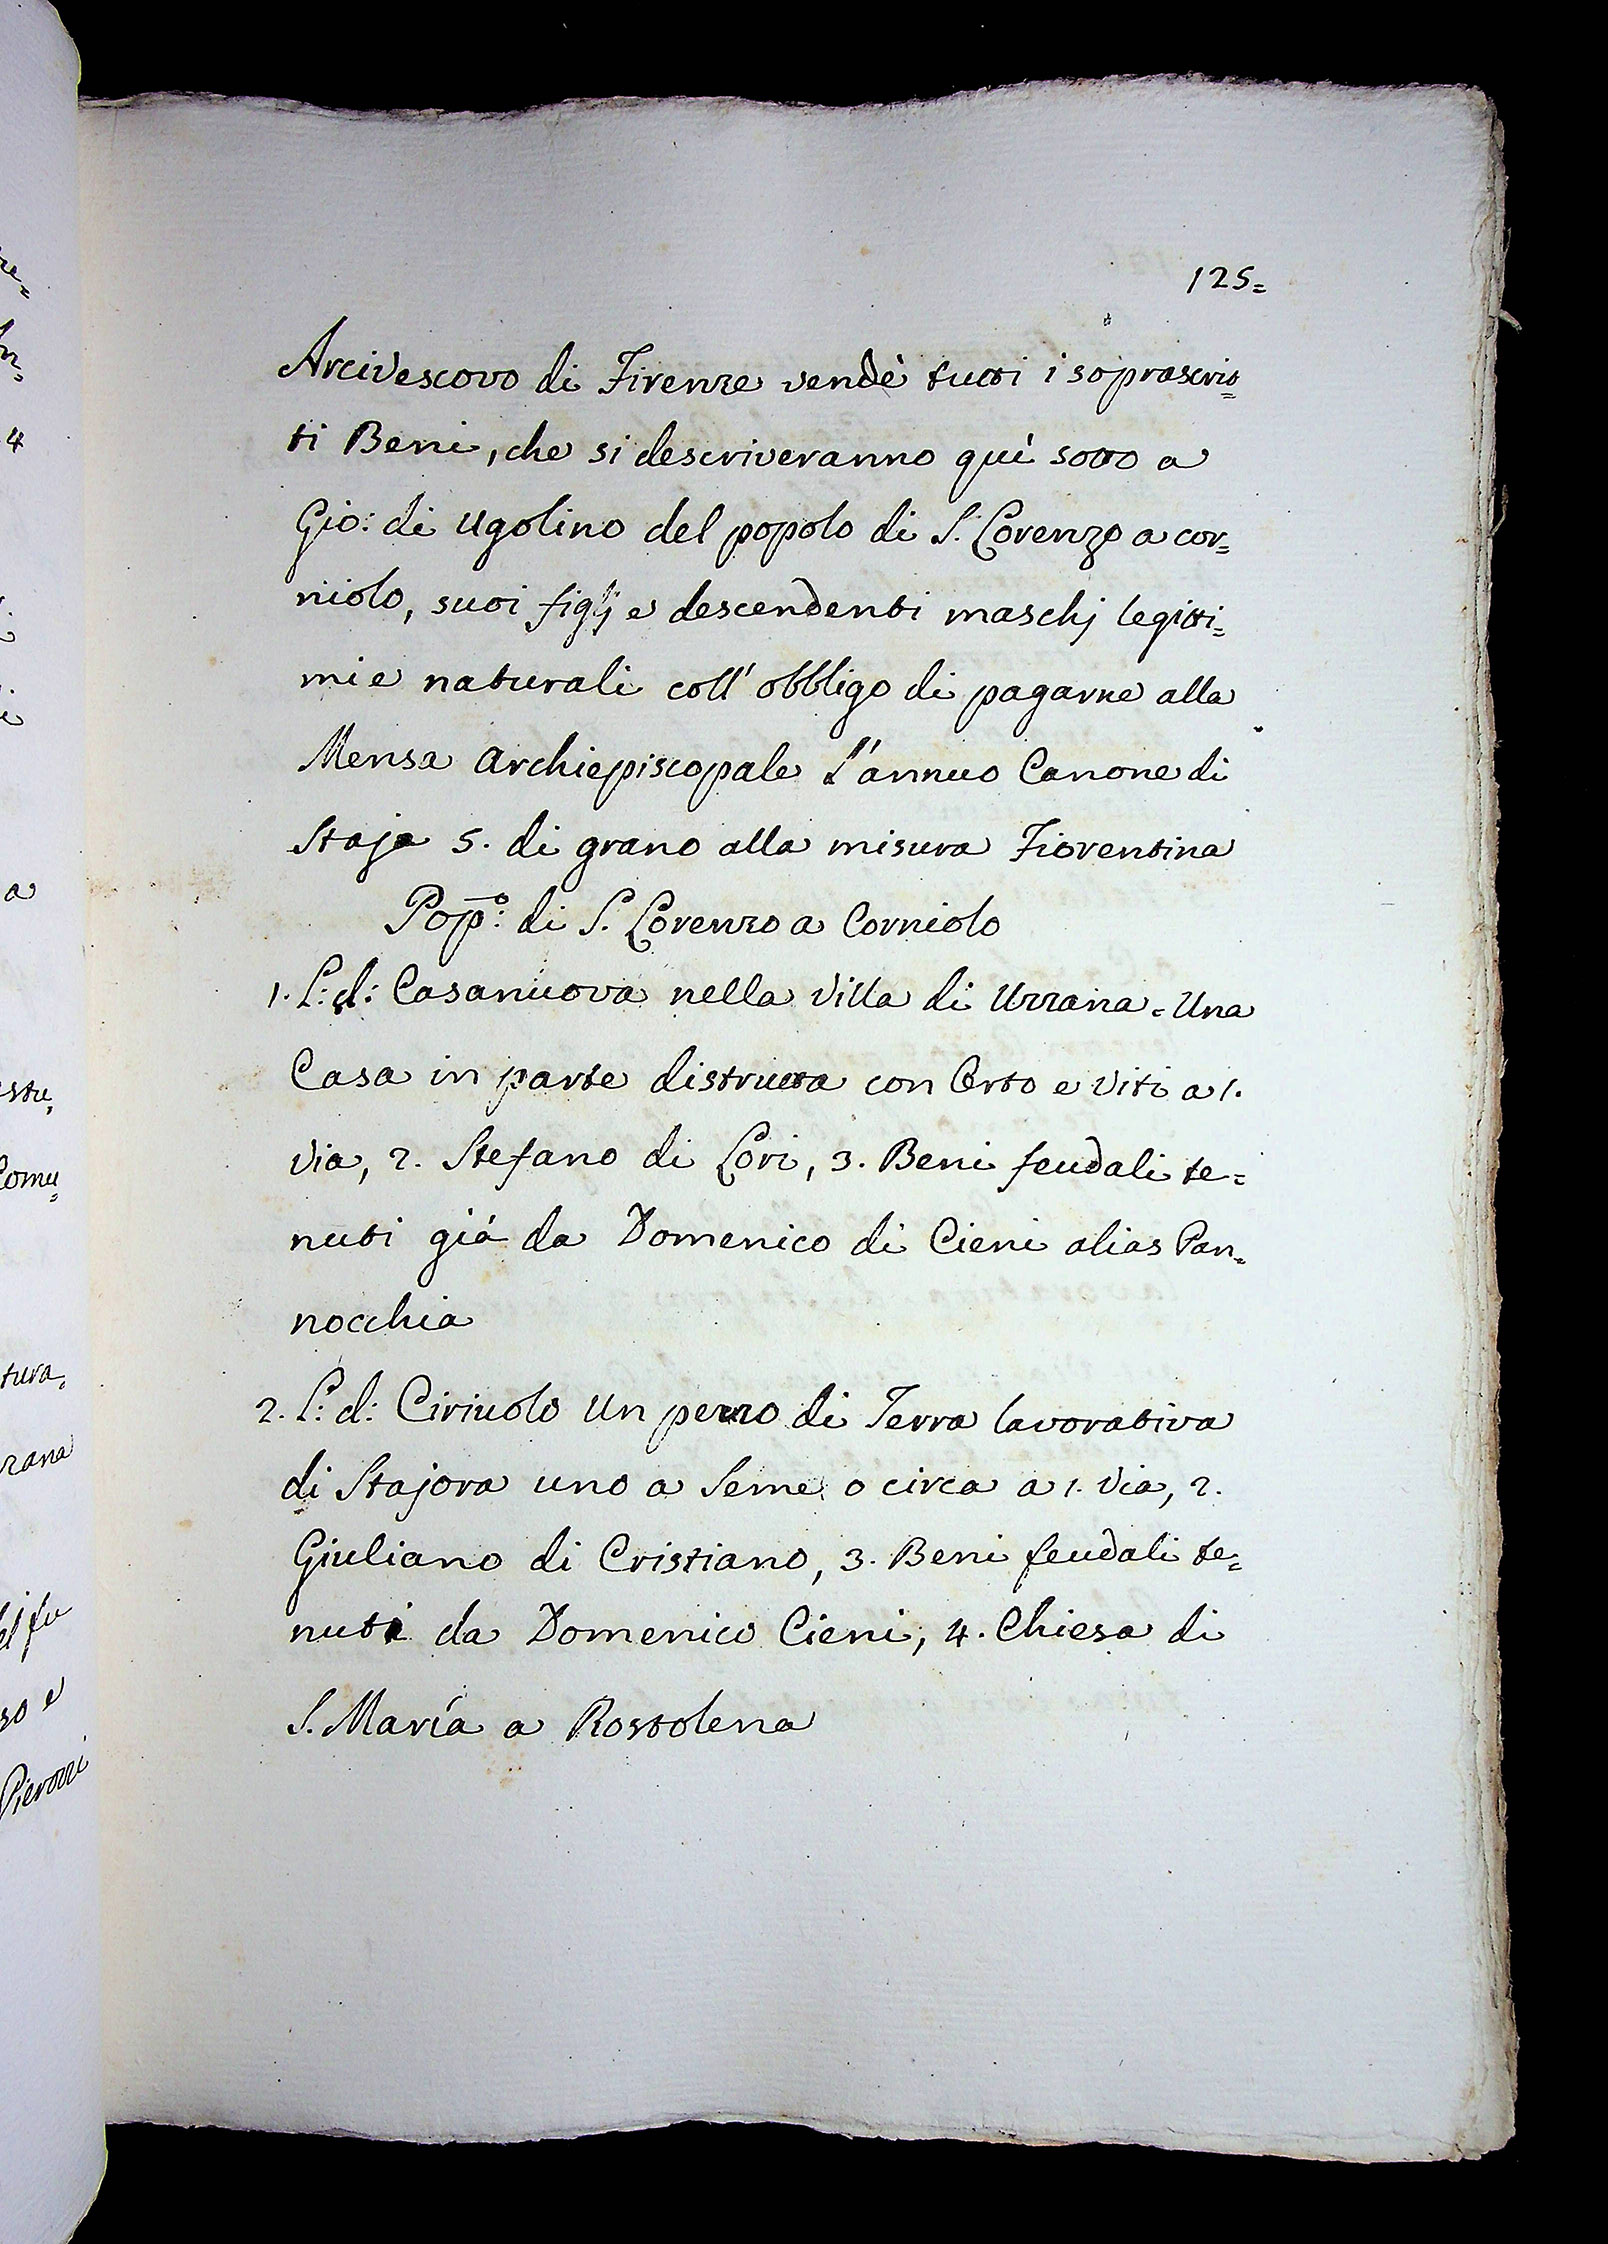 125=
Arcivescovo di Firenze vendè tutti i soprascrit=
ti Beni, che si descriveranno quì sotto a
Gio: di Ugolino del popolo di S. Lorenzo a cor=
niolo, suoi figlj e descendenti maschj legitti=
mi e naturali coll' obbligo di pagarne alla
Mensa Archiepiscopale l'annuo Canone di
Staja 5. di grano alla misura Fiorentina
Pop:° di S. Lorenzo a Corniolo
1. L: d: Casanuova nella Villa di Uzzana = Una
Casa in parte distrutta con Orto e Viti a 1.
Via, 2. Stefano di Lori, 3. Beni feudali te=
nuti già da Domenico di Cieni alias Pan=
nocchia
2. L: d: Ciriuolo Un pezzo di Terra lavorativa
di Stajora uno a Seme o circa a 1. Via, 2.
Giuliano di Cristiano, 3. Beni feudali te=
nuti da Domenico Cieni, 4. Chiesa di
S. María a Rostolena